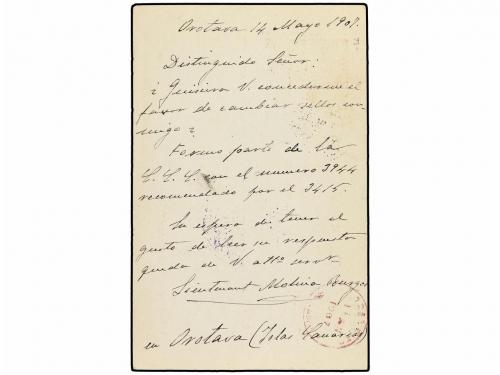 Orotava 14 Mayo 1907.
Distinguido Señor:
¿Quisiera V. concederme el
favor de cambiar sellos con-
migo?
Formo parte de la
con el numero 3944
recomendado por el 3415.
En espera de tener el
gusto de leer su respuesta
queda de V. atto
Lieutenant Molina Burgos
en Orotava (Islas Canarias)